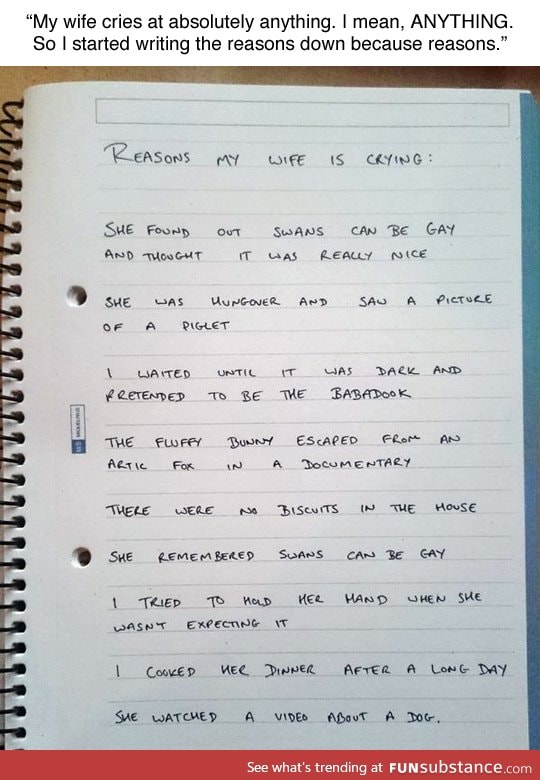 “My wife cries at absolutely anything. I mean, ANYTHING.
So I started writing the reasons down because reasons.”
REASONS MY WIFE IS CRYING:
SHE FOUND OUT SWANS CAN BE GAY
AND THOUGHT IT WAS REALLY NICE
SHE WAS HUNGOVER AND SAW A PICTURE
OF A PIGLET
I WAITED UNTIL IT WAS DARK AND
PRETENDED TO BE THE BABADOOK
THE FLUFFY BUNNY ESCAPED FROM AN
ARTIC FOX IN A DOCUMENTARY
THERE WERE NO BISCUITS IN THE HOUSE
SHE REMEMBERED SWANS CAN BE GAY
I TRIED TO HOLD HER HAND WHEN SHE
WASNT EXPECTING IT
I COOKED HER DINNER AFTER A LONG DAY
SHE WATCHED A VIDEO ABOUT A DOG.
See what's trending at FUNsubstance.com